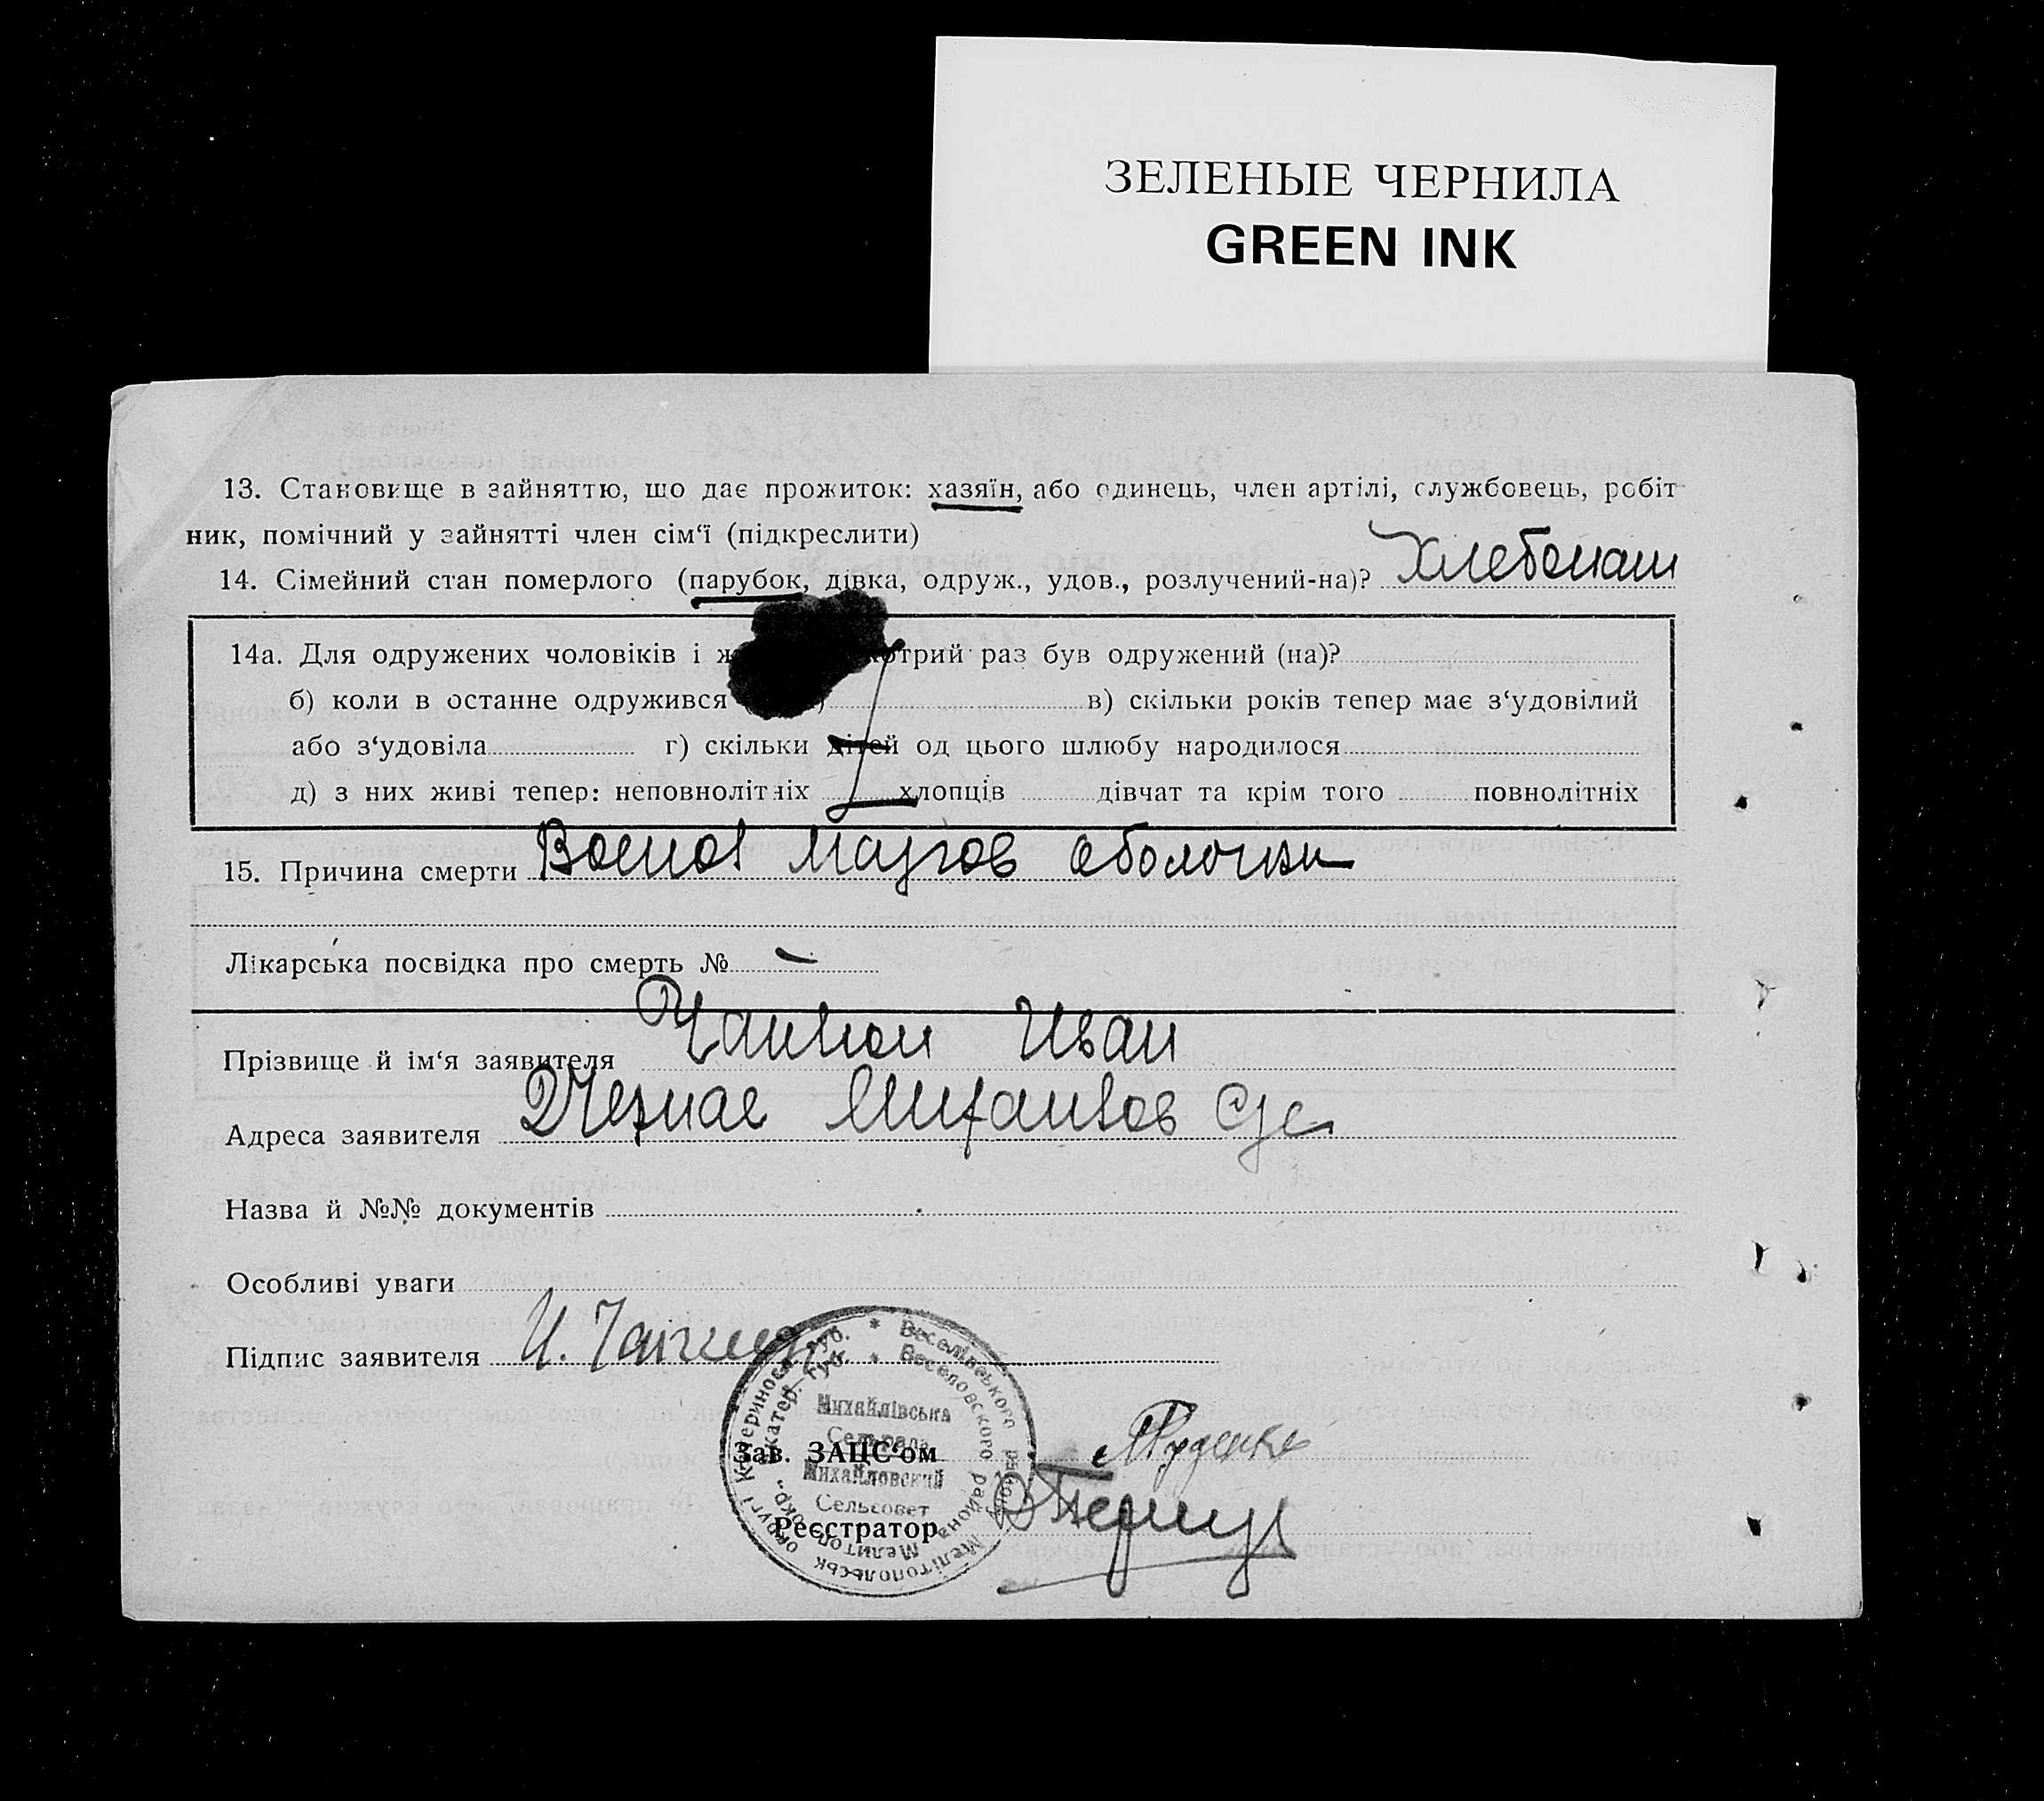 ЗЕЛЕНЫЕ ЧЕРНИЛА
GREEN INK
13. Становище в зайняттю, що дає прожиток: хазяїн, або одинець, член артілі, службовець, робіт-
ник, помічний у зайнятті член сім‘ї (підкреслити)
14. Сімейний стан померлого (парубок, дівка, одруж., удов., розлучений-на)? Хлебопаш
14а. Для одружених чоловіків і ж котрий раз був одружений (на)?
б) коли в останне одружився в) скільки років тепер має з‘удовілий
або з‘удовіла г) скільки дітей од цього шлюбу народилося
д) з них живі тепер: неповнолітніх хлопців дівчат та крім того повнолітніх
15. Причина смерти оболочки
Лікарська посвідка про смерть № —
Прізвище й ім‘я заявителя Иван
Адреса заявителя
Назва й №№ документів
Особливі уваги
Підпис заявителя И.
Катеринослав. губ. * Веселівського району Мелітопольськ округі
Екатер. Губ. * Веселовского района Мелитопол. окр.
Михайлівська
Сельрада
Зав. ЗАЦС‘ом
Михайловский
Сельсовет
Реєстратор